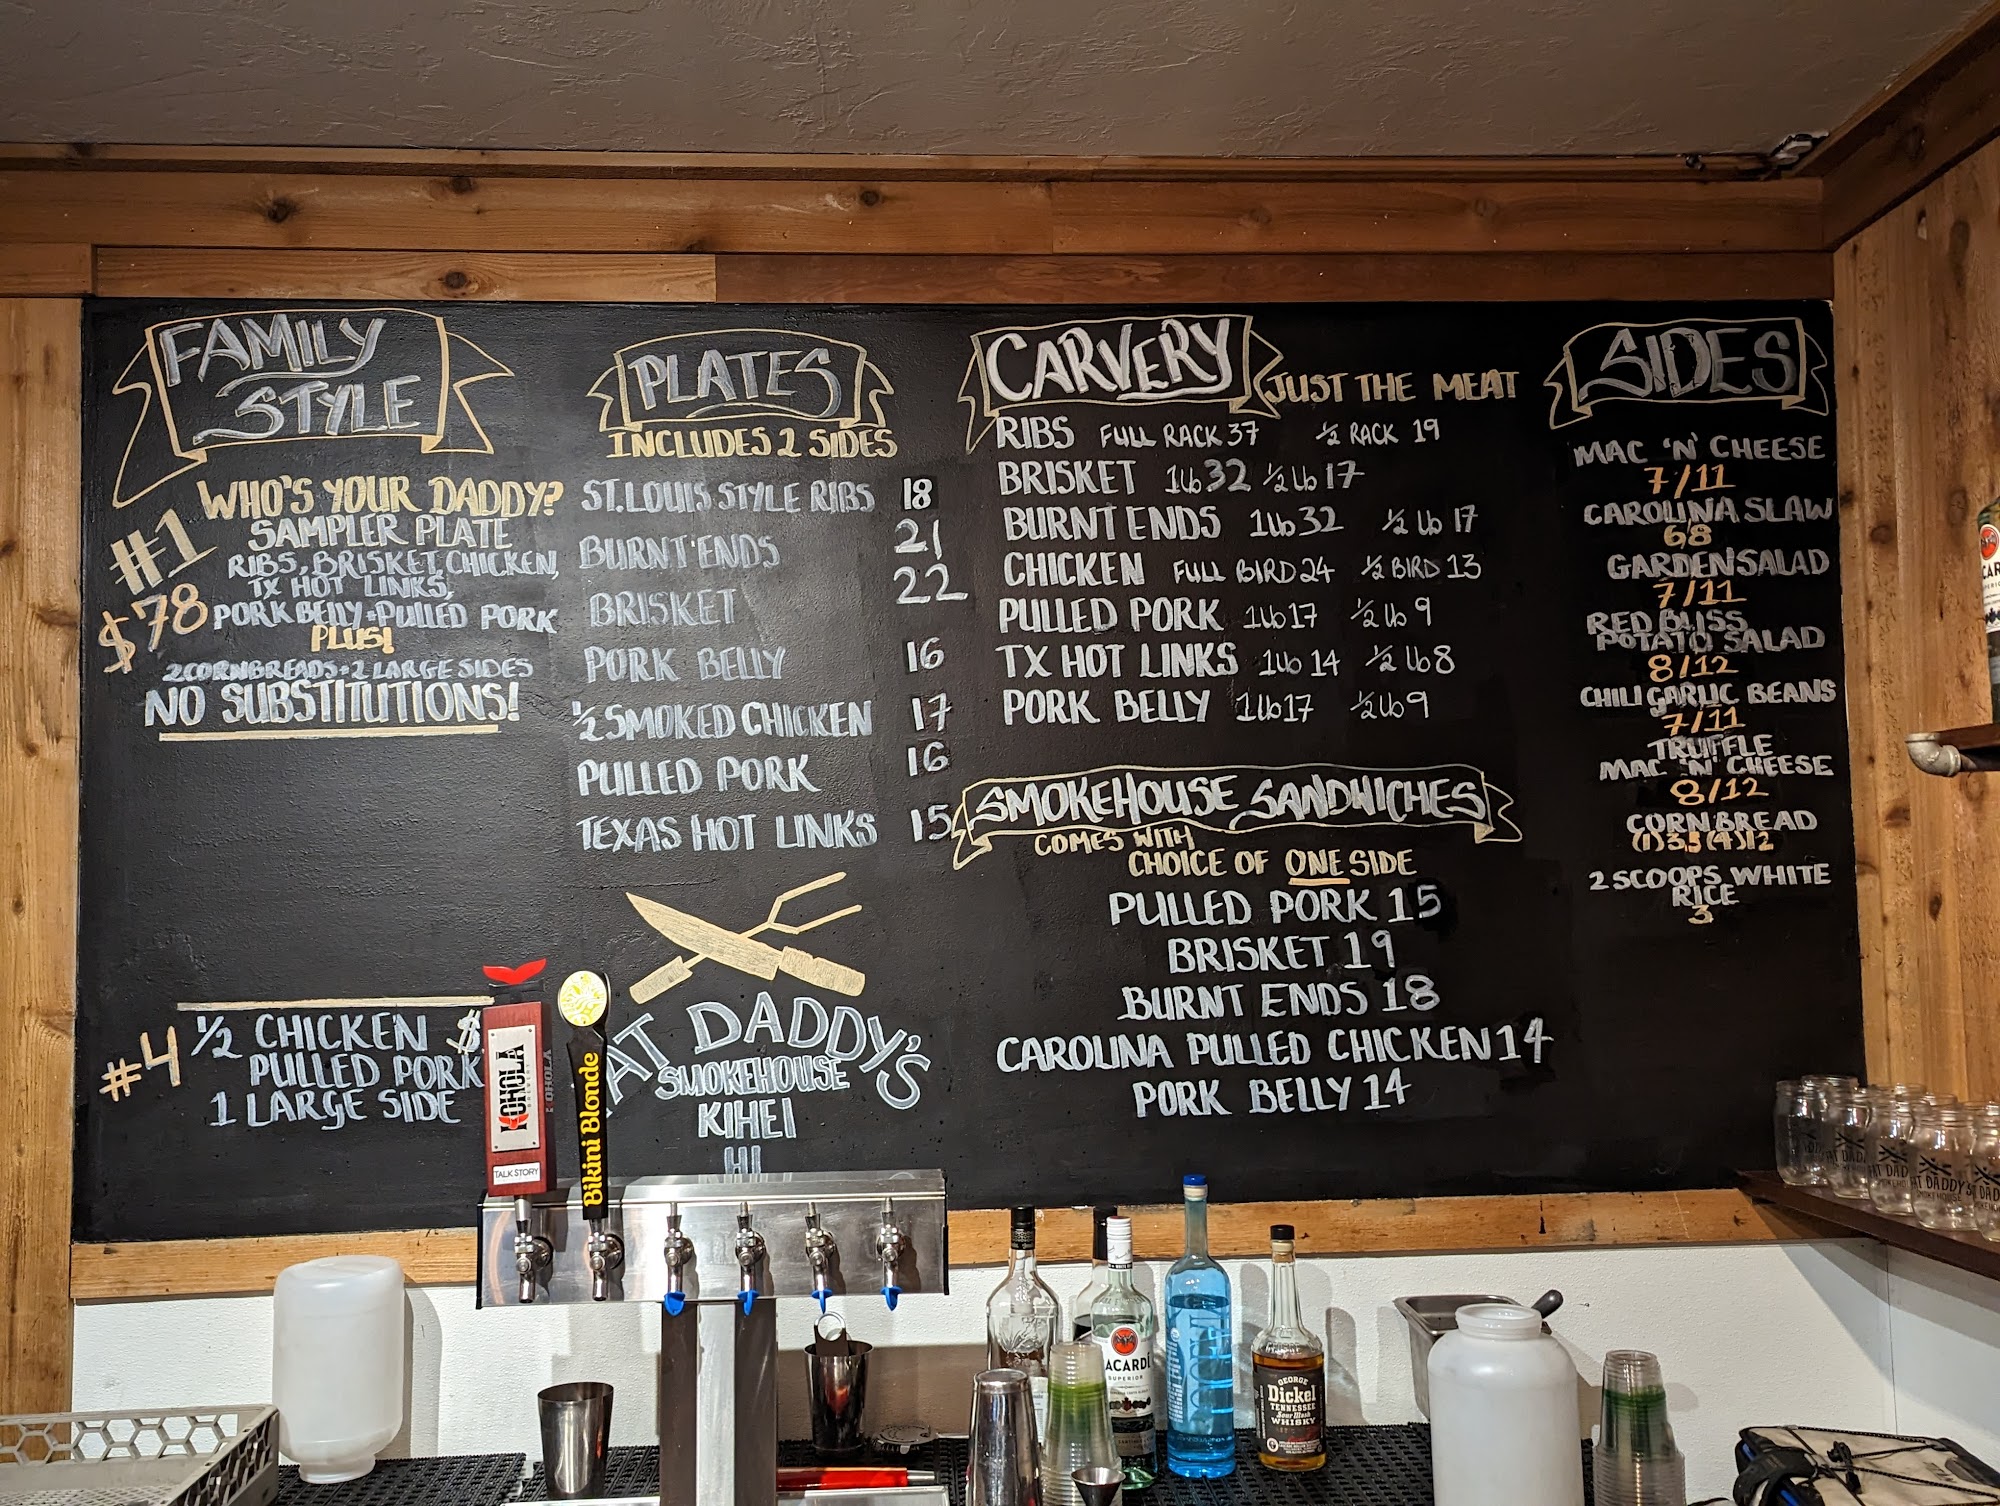 FAMILY
STYLE
#1
$78
WHO'S YOUR DADDY?
SAMPLER PLATE
RIBS, BRISKET, CHICKEN,
TX HOT LINKS,
PORK BELLY + PULLED PORK
PLUS!
2 CORNBREADS + 2 LARGE SIDES
NO SUBSTITUTIONS!
#4
1/2 CHICKEN $
PULLED PORK
1 LARGE SIDE
PLATES
INCLUDES 2 SIDES
ST. LOUIS STYLE RIBS 18
BURNT ENDS 21
BRISKET 22
PORK BELLY 16
1/2 SMOKED CHICKEN 17
PULLED PORK 16
TEXAS HOT LINKS 15
AT DADDY'S
SMOKEHOUSE
KIHEI
HI
CARVERY JUST THE MEAT
RIBS FULL RACK 37 1/2 RACK 19
BRISKET 1lb 32 1/2 lb 17
BURNT ENDS 1lb 32 1/2 lb 17
CHICKEN FULL BIRD 24 1/2 BIRD 13
PULLED PORK 1lb 17 1/2 lb 9
TX HOT LINKS 1lb 14 1/2 lb 8
PORK BELLY 1lb 17 1/2 lb 9
SMOKEHOUSE SANDWICHES
COMES WITH
CHOICE OF ONE SIDE
PULLED PORK 15
BRISKET 19
BURNT ENDS 18
CAROLINA PULLED CHICKEN 14
PORK BELLY 14
SIDES
MAC 'N' CHEESE
7/11
CAROLINA SLAW
6,8
GARDEN SALAD
7/11
RED BLISS
POTATO SALAD
8/12
CHILI GARLIC BEANS
7/11
TRUFFLE
MAC 'N' CHEESE
8/12
CORN BREAD
(1)3.5 (4)12
2 SCOOPS WHITE
RICE
3
KOHOLA
TALK STORY
Bikini Blonde
ACARDÍ
SUPERIOR
GEORGE
Dickel
TENNESSEE
Sour Mash
WHISKY
AT DADDY'S